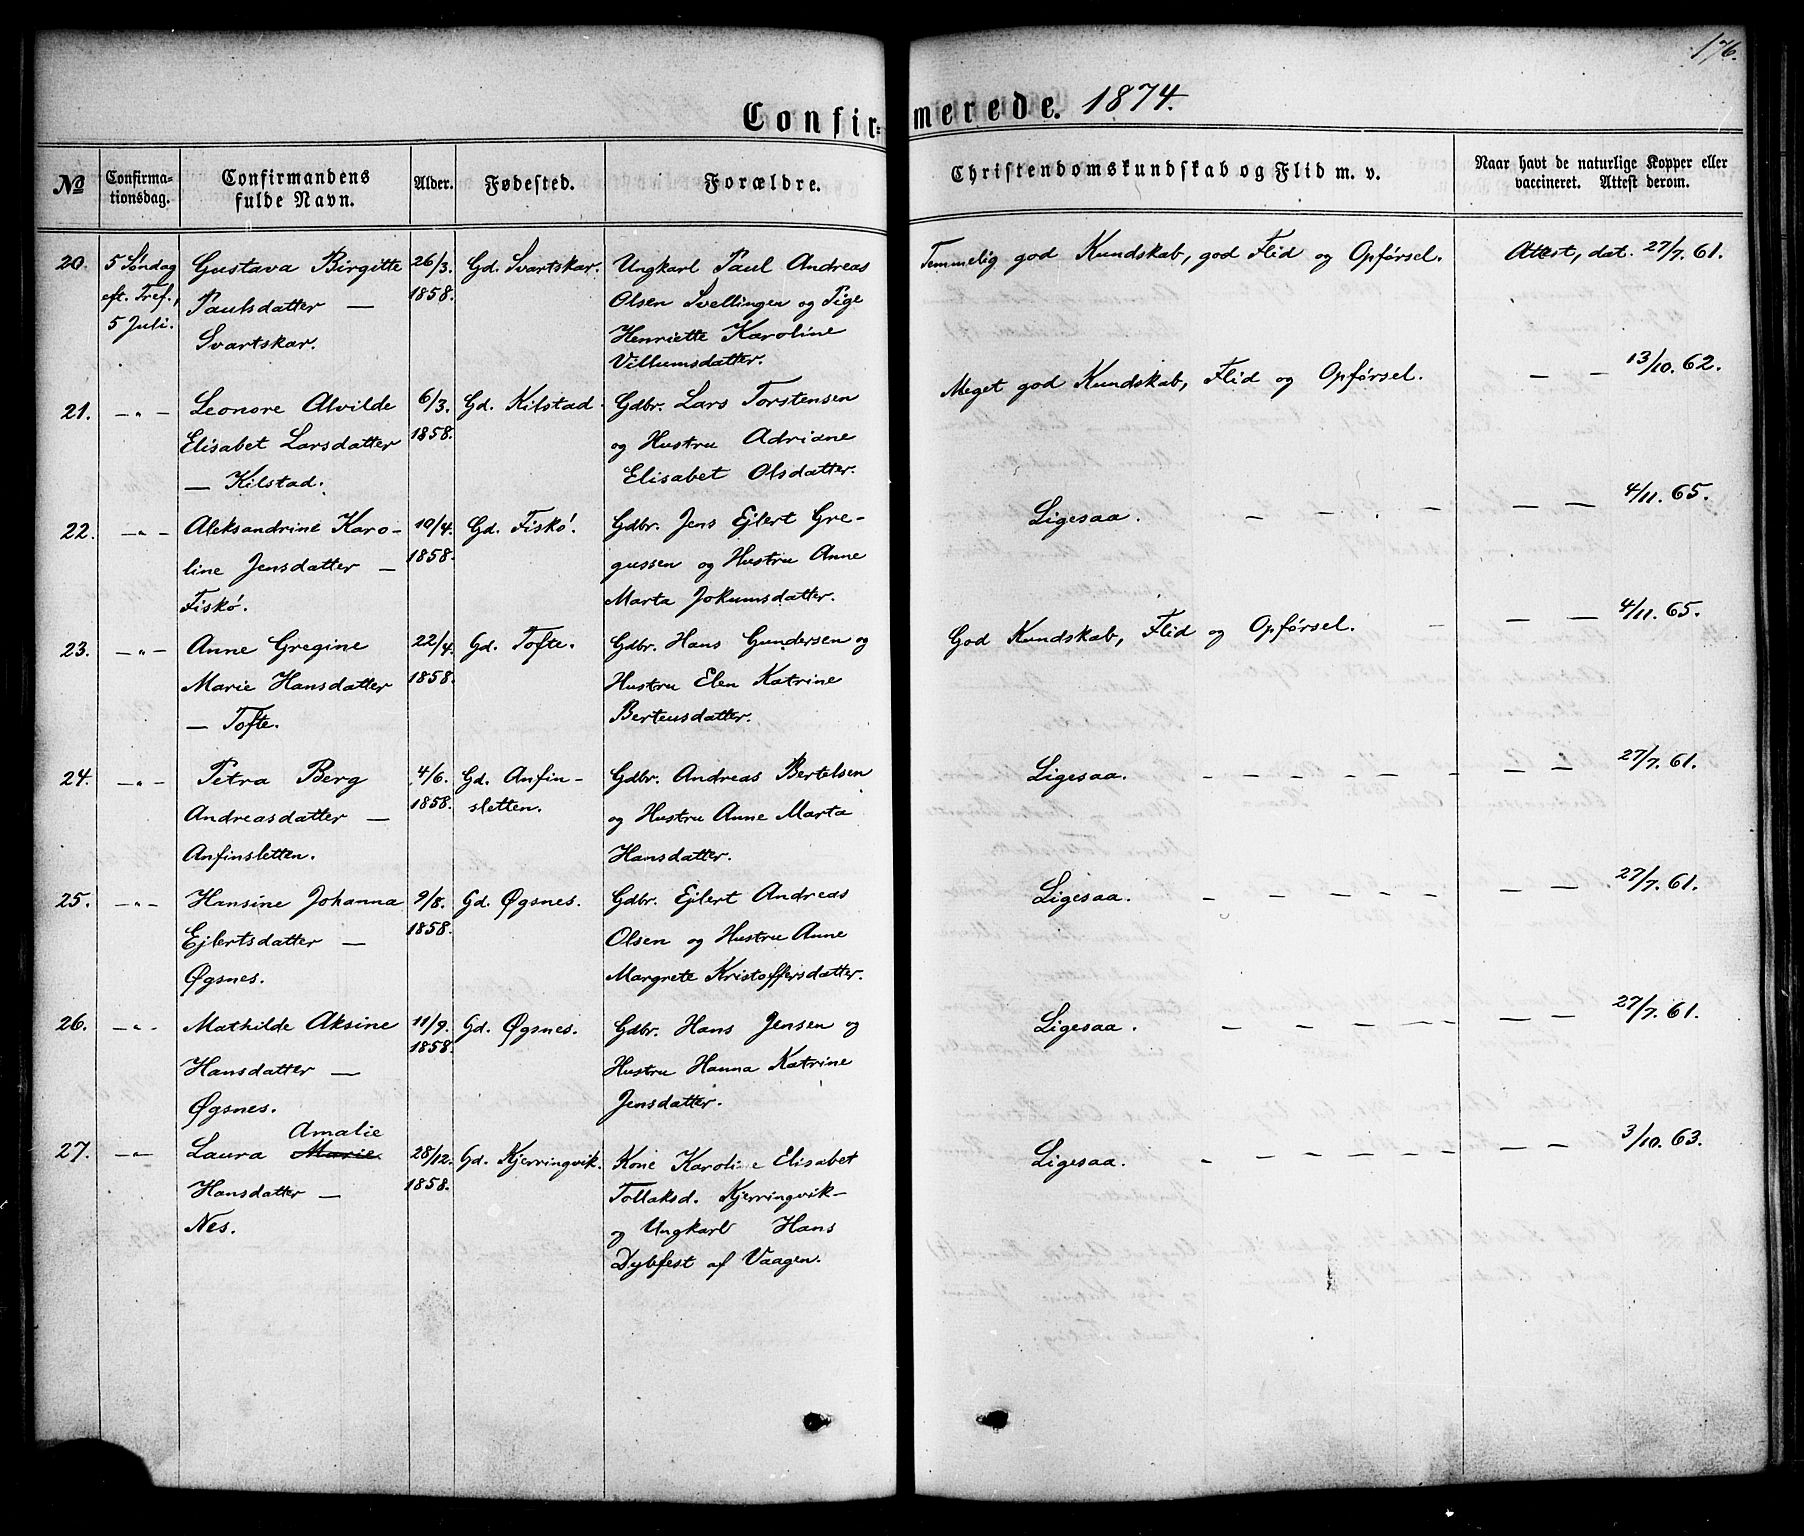 176.
Confirmerede. 1874.
No
Confirmationsdag.
Confirmandens fulde Navn.
Alder.
Fødested.
Forældre.
Christendomskundskab og Flid m. v.
Naar havt de naturlige Kopper eller vaccineret. Attest derom.
20.
5 Søndag
eft. Tref.,
5 Juli.
Gustava Birgitte
Paulsdatter —
Svartskar.
26/3.
1858.
Gd. Svartskar.
Ungkarl Paul Andreas
Olsen Svellingen og Pige
Henriette Karoline
Villumsdatter.
Temmelig god Kundskab, god Flid og Opførsel.
Attest, dat. 27/7. 61.
21.
— " —
Leonore Alvilde
Elisabet Larsdatter
— Kilstad.
6/3.
1858.
Gd. Kilstad.
Gdbr. Lars Torstensen
og Hustru Adriane
Elisabet Olsdatter.
Meget god Kundskab, Flid og Opførsel.
— — 13/10. 62.
22.
— " —
Aleksandrine Karo-
line Jensdatter —
Fiskø.
10/4.
1858.
Gd. Fiskø.
Gdbr. Jens Ejlert Gre-
gussen og Hustru Anne
Marta Jokumsdatter.
Ligesaa. — — — —
— — 4/11. 65.
23.
— " —
Anne Gregine
Marie Hansdatter
— Tofte.
22/4.
1858.
Gd. Tofte.
Gdbr. Hans Gundersen og
Hustru Elen Katrine
Berteusdatter.
God Kundskab, Flid og Opførsel. —
— — 4/11. 65.
24.
— " —
Petra Berg
Andreasdatter —
Anfinsletten.
4/6.
1858.
Gd. Anfin-
sletten.
Gdbr. Andreas Bertelsen
og Hustru Anne Marta
Hansdatter.
Ligesaa. — — — — — —
— — 27/7. 61.
25.
— " —
Hansine Johanna
Ejlertsdatter —
Øgsnes.
9/8.
1858.
Gd. Øgsnes.
Gdbr. Ejlert Andreas
Olsen og Hustru Anne
Margrete Kristoffersdatter.
Ligesaa. — — — — — —
— — 27/7. 61.
26.
— " —
Mathilde Aksine
Hansdatter —
Øgsnes.
11/9.
1858.
Gd. Øgsnes.
Gdbr. Hans Jensen og
Hustru Hanna Katrine
Jensdatter.
Ligesaa. — — — — — —
— — 27/7. 61.
27.
— " —
Amalie
Laura Marie
Hansdatter —
Nes.
28/12.
1858.
Gd. Kjerringvik.
Kone Karoline Elisabet
Tollaksd. Kjerringvik—
og Ungkarl Hans
Dybfest af Vaagen.
Ligesaa. — — — — — —
— — 3/10. 63.